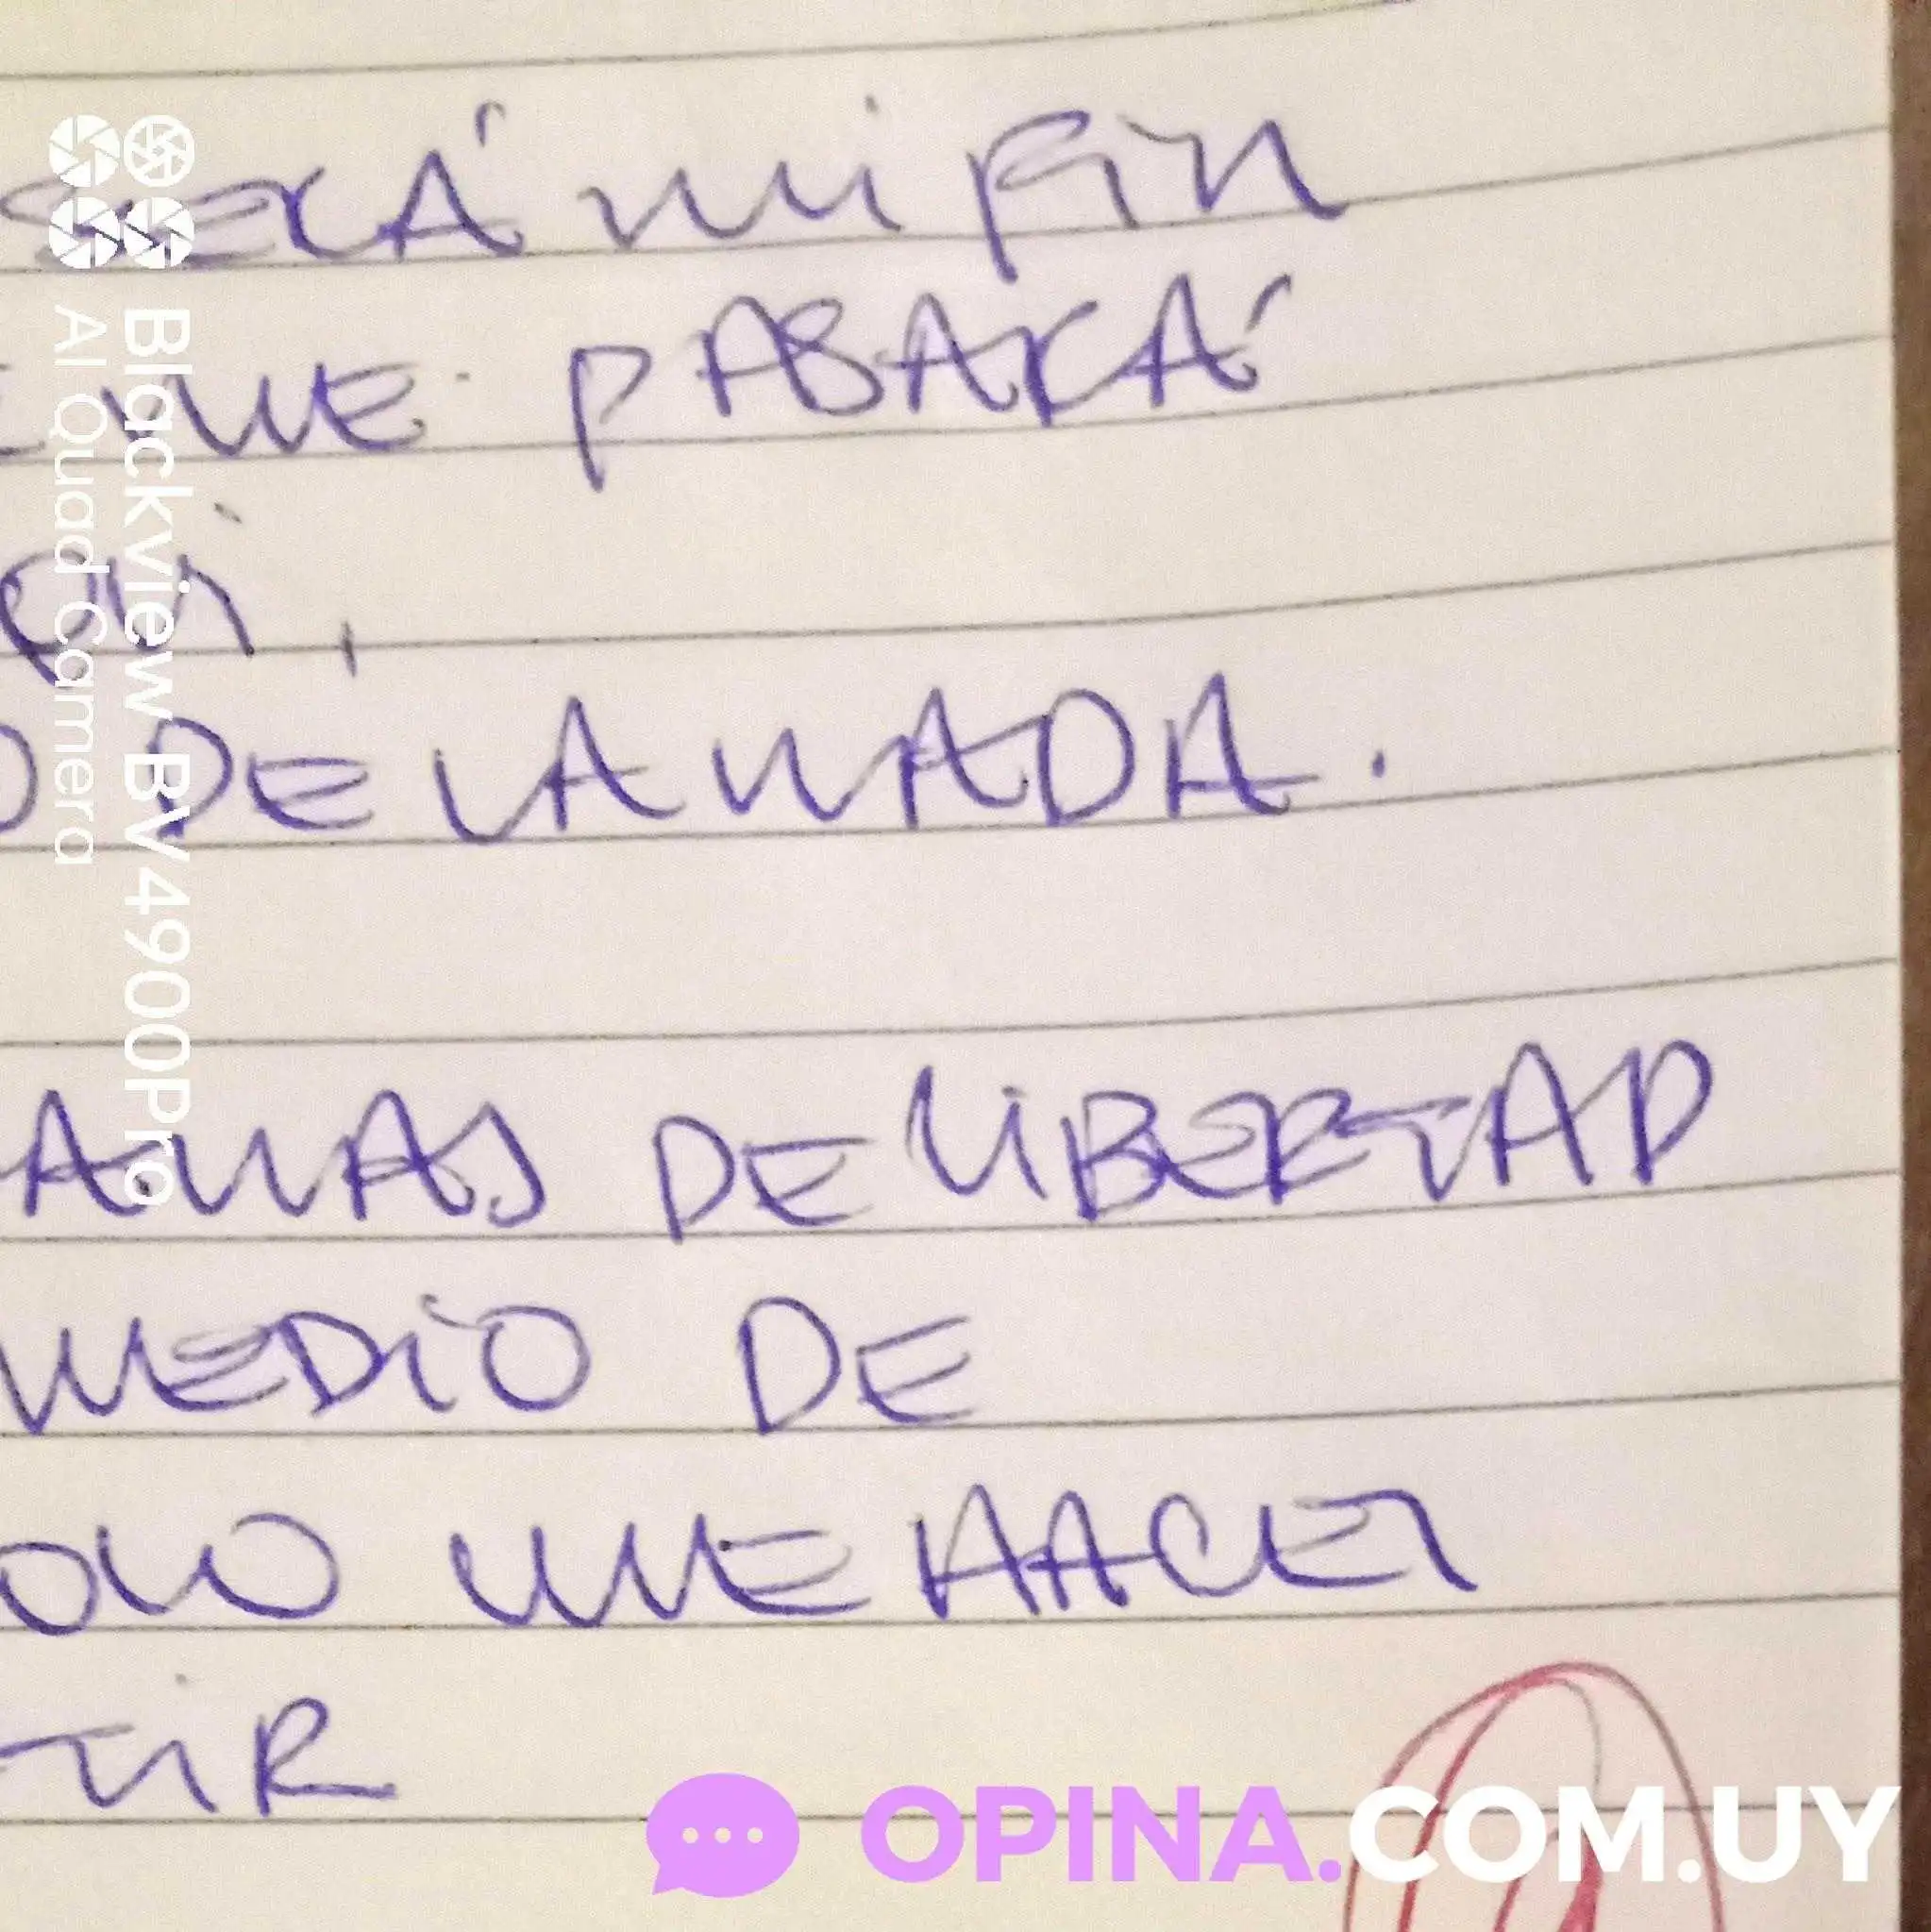 SERÁ mi fin
ME PASARÁ
DE LA NADA.
DE LIBERTAD
MEDIO DE
ME HACE
Blackview BV4900Pro
AI Quad camera
OPINA.COM.UY